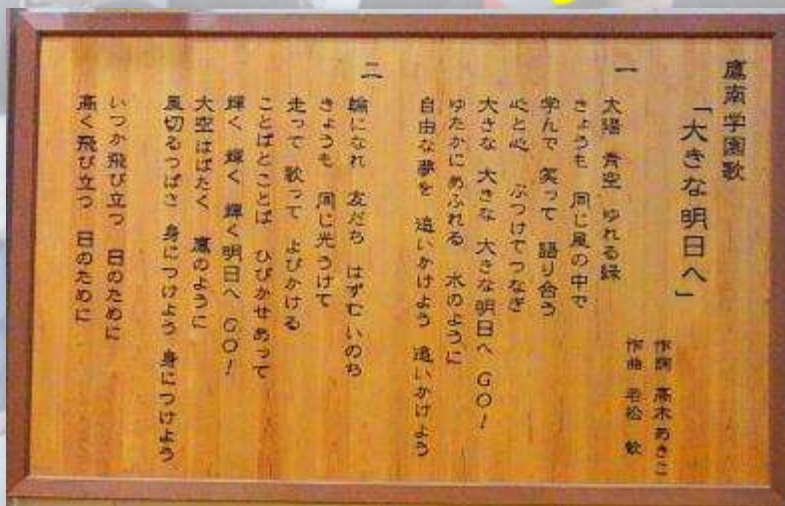 鷹南学園歌
「大きな明日へ」
作詞 高木あきこ
作曲 若松 歓
一
太陽 青空 ゆれる緑
きょうも 同じ風の中で
学んで 笑って 語り合う
心と心 ぶつけてつなぎ
大きな 大きな 大きな明日へ GO!
ゆたかにあふれる 水のように
自由な夢を 追いかけよう 追いかけよう
二
輪になれ 友だち はずむいのち
きょうも 同じ光うけて
走って 歌って よびかける
ことばとことば ひびかせあって
輝く 輝く 輝く明日へ GO!
大空はばたく 鷹のように
風切るつばさ 身につけよう 身につけよう
いつか飛び立つ 日のために
高く飛び立つ 日のために